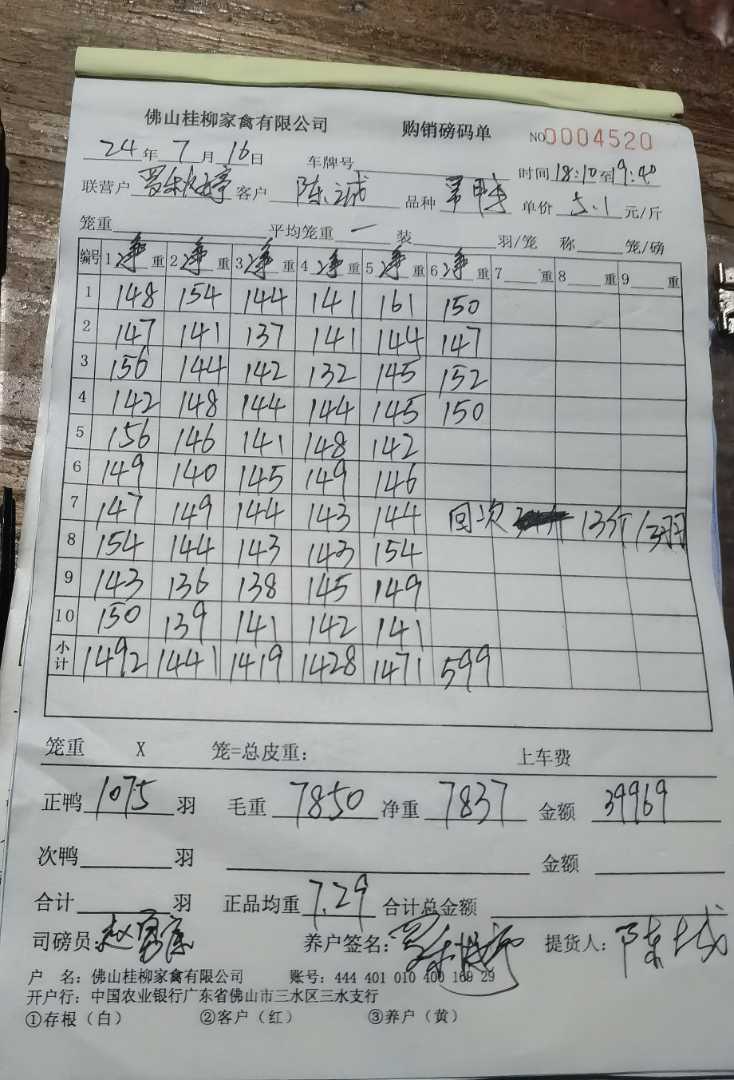 佛山桂柳家禽有限公司 购销磅码单 NO0004520
24年7月16日 车牌号 时间18:10至9:40
联营户 客户 陈诚 品种 单价5.1元/斤
笼重 平均笼重 一 装 羽/笼 称 笼/磅
编号 1净重 2净重 3净重 4净重 5净重 6净重 7 重 8 重 9 重
1 148 154 144 141 161 150
2 147 141 137 141 144 147
3 156 144 142 132 145 152
4 142 148 144 144 145 150
5 156 146 141 148 142
6 149 140 145 149 146
7 147 149 144 143 144 回次 13斤 13羽
8 154 144 143 143 154
9 143 136 138 145 149
10 150 139 141 142 141
小计 1492 1441 1419 1428 1471 599
笼重 X 笼=总皮重: 上车费
正鸭 1075 羽 毛重 7850 净重 7837 金额 39969
次鸭 羽 金额
合计 羽 正品均重 7.29 合计总金额
司磅员: 养户签名: 提货人: 陈诚
户 名: 佛山桂柳家禽有限公司 账号: 444 401 010 400 169 29
开户行: 中国农业银行广东省佛山市三水区三水支行
①存根（白） ②客户（红） ③养户（黄）